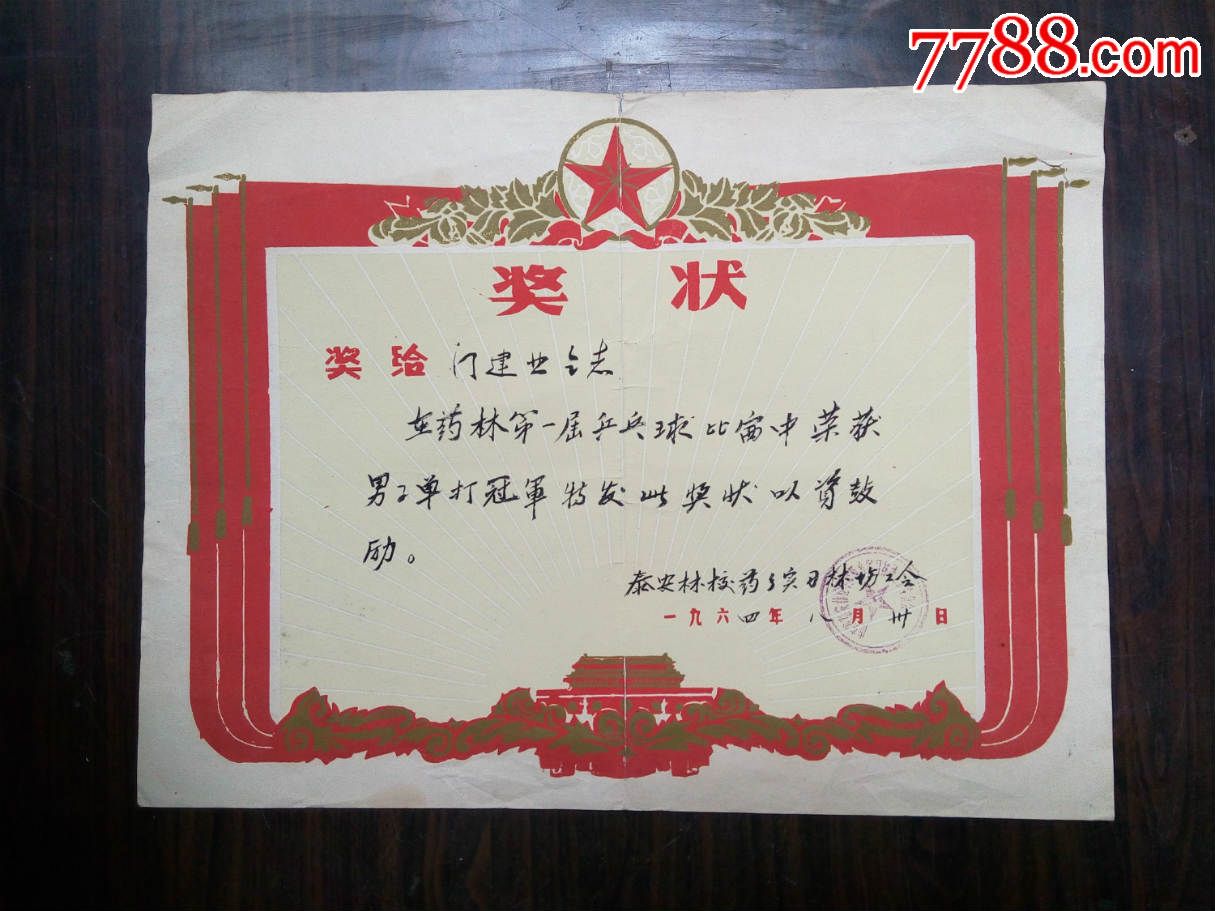 7788.com
奖 状
奖给 门建业仝志
在药林第一届乒乓球比赛中荣获
男子单打冠軍特发此奖状以资鼓
励。
泰安林校药乡实习林场工会
一九六四年八月卅日